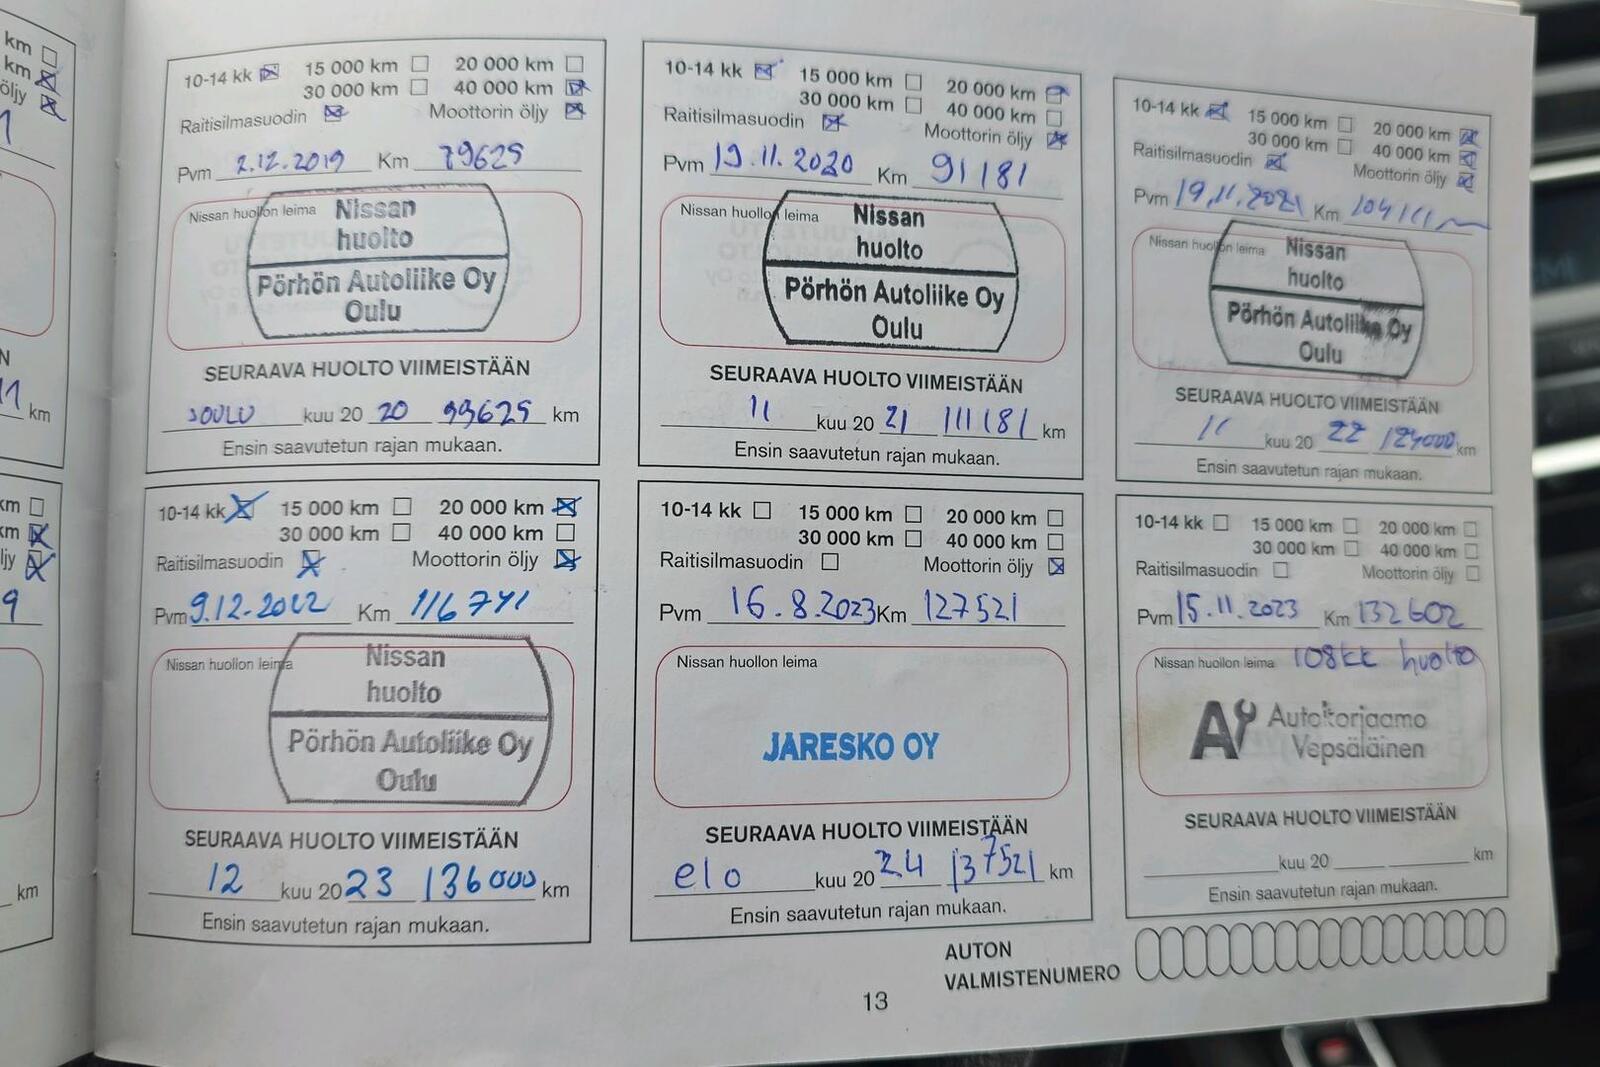 km
km
öljy
1
N
11 km
km
km
ljy
9
km
10-14 kk 15 000 km 20 000 km
30 000 km 40 000 km
Raitisilmasuodin Moottorin öljy
Pvm 2.12.2019 Km 79625
Nissan huollon leima
Nissan
huolto
Pörhön Autoliike Oy
Oulu
SEURAAVA HUOLTO VIIMEISTÄÄN
JOULU kuu 20 20 99625 km
Ensin saavutetun rajan mukaan.
10-14 kk 15 000 km 20 000 km
30 000 km 40 000 km
Raitisilmasuodin Moottorin öljy
Pvm 19.11.2020 Km 91181
Nissan huollon leima
Nissan
huolto
Pörhön Autoliike Oy
Oulu
SEURAAVA HUOLTO VIIMEISTÄÄN
11 kuu 20 21 111181 km
Ensin saavutetun rajan mukaan.
10-14 kk 15 000 km 20 000 km
30 000 km 40 000 km
Raitisilmasuodin Moottorin öljy
Pvm 19.11.2021 Km
Nissan huollon leima
Nissan
huolto
Pörhön Autoliike Oy
Oulu
SEURAAVA HUOLTO VIIMEISTÄÄN
11 kuu 20 22 124000 km
Ensin saavutetun rajan mukaan.
10-14 kk 15 000 km 20 000 km
30 000 km 40 000 km
Raitisilmasuodin Moottorin öljy
Pvm 9.12-2022 Km 116741
Nissan huollon leima
Nissan
huolto
Pörhön Autoliike Oy
Oulu
SEURAAVA HUOLTO VIIMEISTÄÄN
12 kuu 20 23 136000 km
Ensin saavutetun rajan mukaan.
10-14 kk 15 000 km 20 000 km
30 000 km 40 000 km
Raitisilmasuodin Moottorin öljy
Pvm 16.8.2023 Km 127521
Nissan huollon leima
JARESKO OY
SEURAAVA HUOLTO VIIMEISTÄÄN
elo kuu 20 24 137521 km
Ensin saavutetun rajan mukaan.
10-14 kk 15 000 km 20 000 km
30 000 km 40 000 km
Raitisilmasuodin Moottorin öljy
Pvm 15.11.2023 Km 132602
Nissan huollon leima 108kk huolto
A Autokorjaamo
Vepsäläinen
SEURAAVA HUOLTO VIIMEISTÄÄN
kuu 20 km
Ensin saavutetun rajan mukaan.
AUTON
VALMISTENUMERO
13